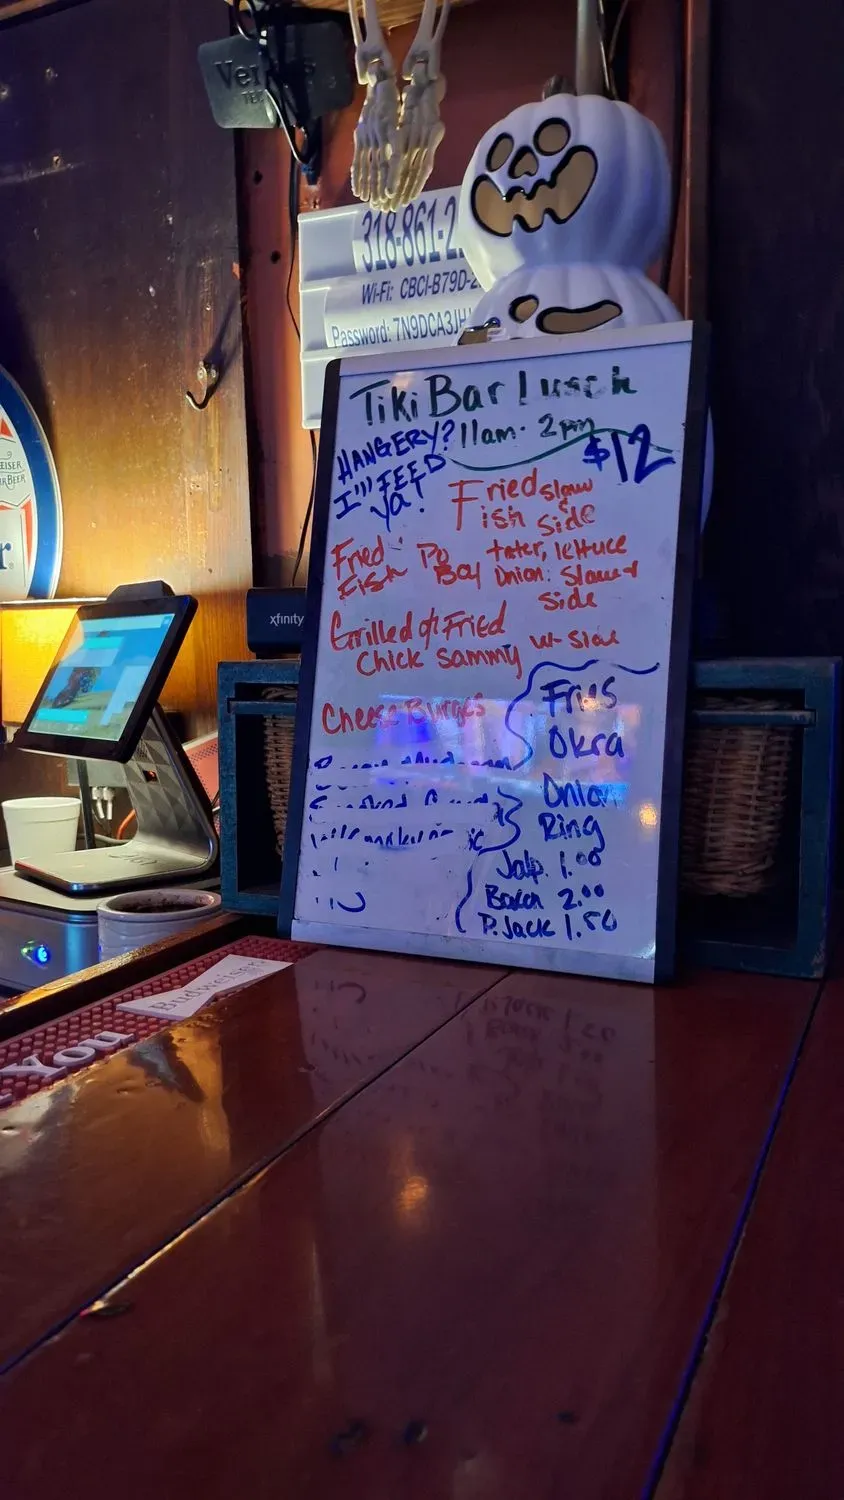 318-861-2
Wi-Fi: CBCI-B79D-2
Password: 7N9DCA3JH
Tiki Bar Lunch
11am - 2pm
HANGERY?
I'll FEED
ya!
$12
Fried
Fish
slaw
&
Side
Fried
Fish
Po
Boy
tater, lettuce
Onion: Slaw &
side
Grilled or Fried
Chick Sammy
w- Side
Cheese Burges
Fries
Okra
Onion
Ring
Jalp. 1.00
Bacon 2.00
P. Jack 1.50
xfinity
Budweiser
You